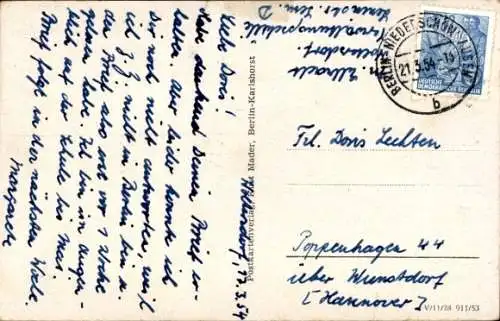 Woltersdorf, 17.3.54
Liebe Doris!
Habe dankend Deinen Brief er-
halten. Aber leider konnte ich
Dir noch nicht antworten, weil
ich z. Z. nicht in Berlin bin u.
der Brief also erst vor 1 Woche
gelesen habe. Ich bin im Augen-
blick auf der Schule bis Mai.
Brief folgt in der nächsten Woche.
Margarete
Woltersdorf
Verwaltungsschule
Postkartenverlag Max Mader, Berlin-Karlshorst
BERLIN-NIEDERSCHÖNHAUSEN
21.3.54
b
DEUTSCHE
DEMOKRATISCHE REPUBLIK
Frl. Doris Lechten
Poppenhagen 44
über Wunstdorf
[Hannover]
V/11/28 911/53